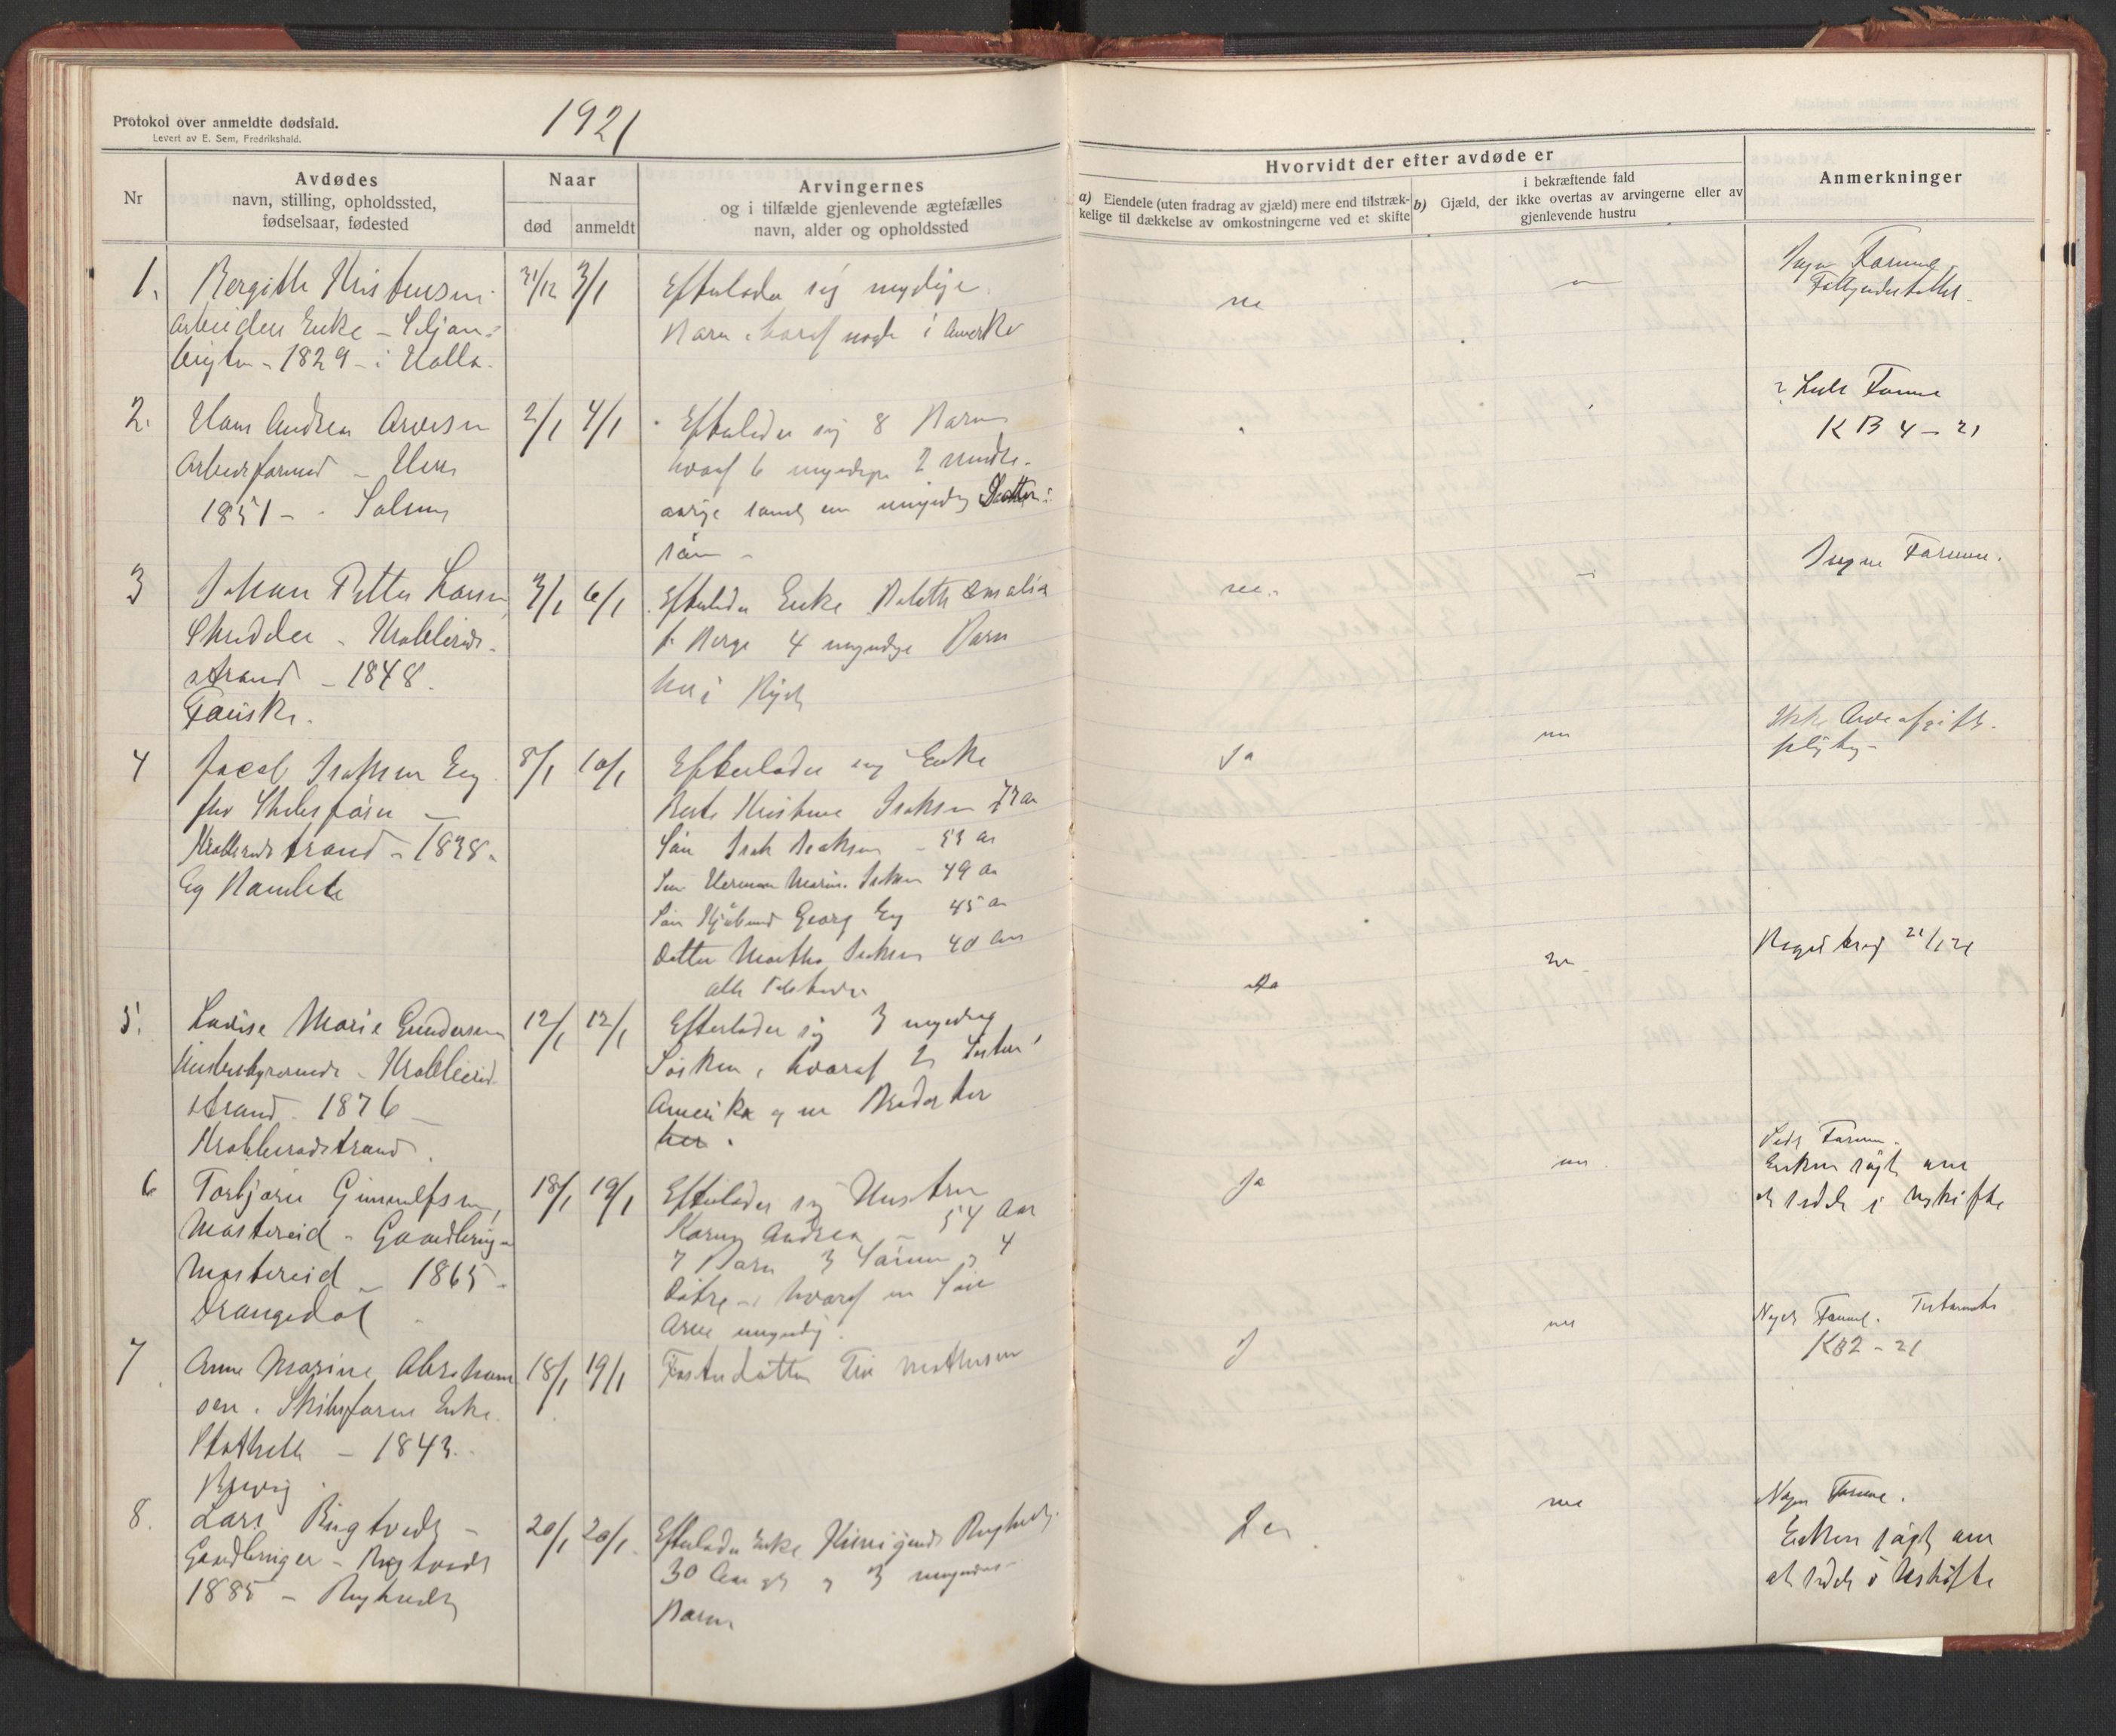 Protokol over anmeldte dødsfald.
Levert av E. Sem, Fredrikshald.
1921
Nr
Avdødes
navn, stilling, opholdssted,
fødselsaar, fødested
Naar
død
anmeldt
Arvingernes
og i tilfælde gjenlevende ægtefælles
navn, alder og opholdssted
Hvorvidt der efter avdøde er
a) Eiendele (uten fradrag av gjæld) mere end tilstræk-
kelige til dækkelse av omkostningerne ved et skifte
i bekræftende fald
b) Gjæld, der ikke overtas av arvingerne eller av
gjenlevende hustru
Anmerkninger
1.
Bergitte Kristensen
Arbeider Enke
1829 - i Holla.
31/12
3/1
Efterlader sig myndige
Barn hvoraf nogle i Amerika
Ingen Formue
2.
Hans Andrea Arvesen
Arbeidsformand - Herre
1851 - Solum
2/1
4/1
Efterlader sig 8 Barn
hvoraf 6 myndige 2 mindre-
aarige samt en umyndig Datter-
søn -
Formue
KB 4-21
3
Johan Petter Larsen
Skrædder - Krabberød-
strand - 1848.
3/1
6/1
Efterlader Enke Amalia
f. Berge 4 myndige Barn
her i
Ingen Formue.
4
Jacob Isaksen Eeg
fhv Skibsfører -
Krabberødstrand - 1838.
Eeg Bamble
8/1
10/1
Efterlader sig Enke
Kristine Isaksen
Søn Isak Isaksen - 53 aar
Søn Herman Marin. Isaksen 49 aar
Søn Georg Eeg 45 aar
Datter Martha Isaksen 40 aar
alle
Ja
Ikke Arveafgifts-
pligtig -
5.
Lovise Marie Gundersen
Krabberød-
strand. 1876 -
Krabberødstrand.
12/1
12/1
Efterlader sig 3 myndige
Søsken, hvoraf 2 Søstre i
Amerika og en Broder her
her.
Ja
Registrert 21/1 21
6
Torbjørn Gunnulfsen,
Mastereid - Gaardbruger
Mastereid - 1865 -
Drangedal
18/1
19/1
Efterlader sig Hustru
Karen Andrea - 54 Aar
7 Barn 3 Sønner og 4
Døtre - hvoraf en Søn
Arne umyndig.
Ja
Formue.
Enken søgt om
at sidde i Uskifte
7
Anne Marine Abraham
sen. Skibsfører Enke.
Stathelle - 1843.
Brevig.
18/1
19/1
Fosterdatter Mathisen
J
Noget Formue. Testamente
KB2-21
8.
Lars Rugtvedt -
Gaardbruger - Rugtvedt
1885 - Rugtvedt
20/1
20/1
Efterlader Enke Rugtvedt
30 Aar gl og 3 umyndige
Barn
Ja
Noget Formue.
Enken søgt om
at sidde i Uskifte